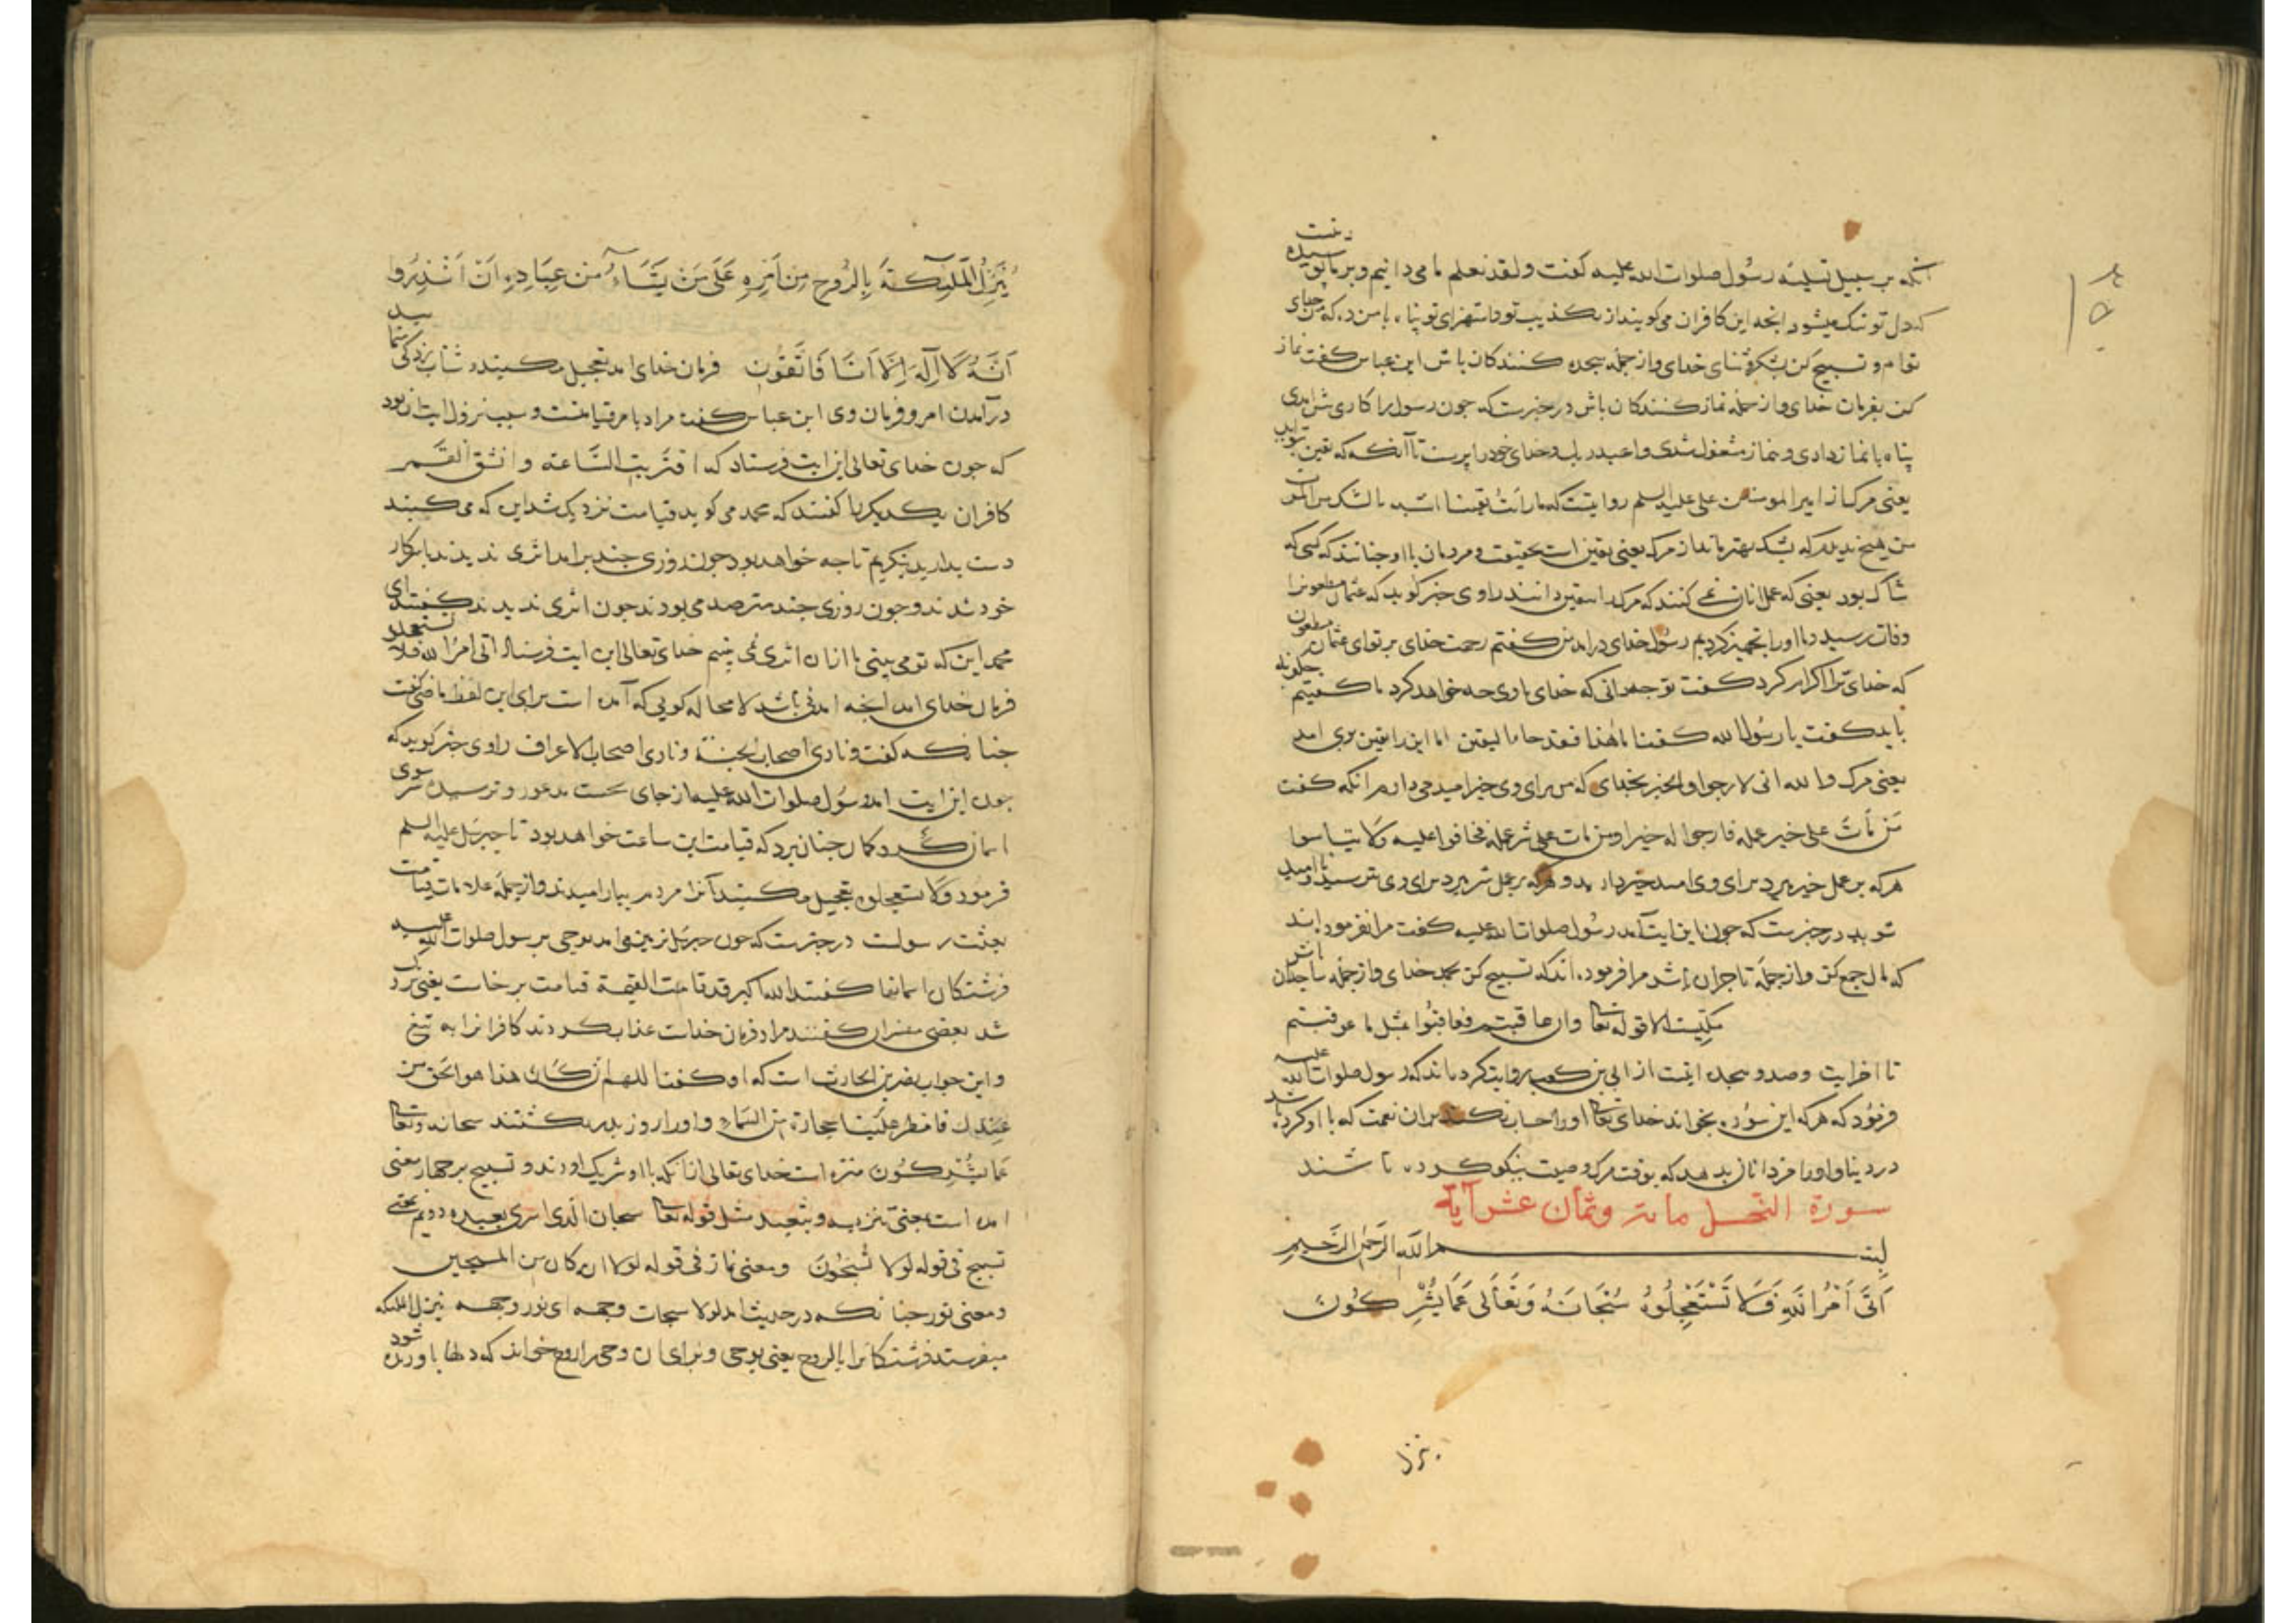 انکه بر سبیل تسلیه رسول صلوات الله علیه کفت ولقد نعلم ما می دانیم و بر ما پوشیده نیست
که دل تو تنک میشود انجه این کافران می کویند از تکذیب تو و استهزای تو پناه با من ده که من خدای
توام و تسبیح کن بشکر و ثنای خدای و از جمله سجده کنندکان باش ابن عباس کفت نماز
کن بفرمان خدای و از جمله نماز کنندکان باش در خبرست که جون رسول را کاری بیش امدی
پناه با نماز دادی و بنماز مشغول شدی واعبد ربک و خدای خود را پرست تا آنکه که یقین بتو اید
یعنی مرک از امیر المومنین علی علیه السلم روایتست که ما رأیت یقینا اشبه بالشک من الموت
من هیچ ندیدم که بشک بهتر ماند از مرک یعنی یقین است بحقیقت و مردمان با او جنانند که کسی که
شاک بود یعنی که عمل انان نمی کنند که مرک را یقین دانند راوی خبر کوید که عثمان مظعون را
وفات رسید و ما او را تجهیز کردیم رسول خدای درامد من کفتم رحمت خدای بر تو ای عثمان مظعون
که خدای ترا اکرام کرد کفت تو جه دانی که خدای با وی جه خواهد کرد ما کفتیم جکونه
باید کفت یا رسول الله کفت اما هذا فقد جاءه الیقین اما این را یقین بوی امد
یعنی مرک والله انی لارجوا له الخیر بخدای که من برای وی خیر امید می دارم انکه کفت
من مات علی خیر عمله فارجوا له خیرا ومن مات علی شر عمله فخافوا علیه ولا تیأسوا
هرکه بر عمل خیر میرد برای وی امید خیر دارید و هرکه بر عمل شر میرد برای وی بترسید و نا امید
شوید در خبرست که جون این ایت آمد رسول صلوات الله علیه کفت مرا نفرموده اند
که مال جمع کن و از جمله تاجران باش مرا فرموده اند که تسبیح کن بحمد خدای و از جمله ساجدان باش
مکیست الا قوله تعالی وان عاقبتم فعاقبوا بمثل ما عوقبتم
تا اخر ایت و صد و ... از ابی بن کعب روایت کرده اند که رسول صلوات الله علیه
فرمود که هرکه این سوره بخواند خدای تعالی او را حساب نکند بران نعمت که با او کرده باشد
در دنیا و او را مزد انان بدهد که بوقت مرک وصیت نیکو کرده باشند
سورة النحل مایة وثمان عشر آیة
بسم الله الرحمن الرحیم
اَتَی اَمْرُ اللهِ فَلَا تَسْتَعْجِلُوهُ سُبْحَانَهُ وَتَعَالَی عَمَّا یُشْرِکُونَ
ینزل
یُنَزِّلُ الْمَلٰئِکَةَ بِالرُّوحِ مِنْ اَمْرِهِ عَلَی مَنْ یَشَآءُ مِنْ عِبَادِهِ اَنْ اَنْذِرُوا
اَنَّهُ لَا اِلٰهَ اِلَّا اَنَا فَاتَّقُونِ فرمان خدای امد تعجیل مکنید و شتاب زدکی منمایید
درآمدن امر و فرمان وی ابن عباس کفت مراد بامر قیامتست و سبب نزول ایت ان بود
که جون خدای تعالی این ایت فرستاد که اقتربت الساعة وانشق القمر
کافران یکدیکر را کفتند که محمد می کوید قیامت نزدیک شد این که می کنید
دست بدارید بنکریم تا جه خواهد بود جون روزی جند برامد اثری ندیدند با سر کار
خود شدند و جون روزی جند مترصد می بودند جون اثری ندیدند کفتند ای
محمد این که تو می بینی ما ازان اثری نمی بینیم خدای تعالی این ایت فرستاد اتی امر الله فلا تستعجلوه
فرمان خدای امد انجه امدنی باشد لا محاله کویی که آمده است برای این لفظ ماضی کفت
جنانکه کفت ونادی اصحاب الجنة ونادی اصحاب الاعراف راوی خبر کوید که
جون این ایت امد رسول صلوات الله علیه از جای بجست مذعور و ترسیده سوی
اسمان نکرید کمان جنان برد که قیامت این ساعت خواهد بود تا جبرئیل علیه السلم
فرمود فلا تستعجلوه تعجیل مکنید آنرا مردم بیارامیدند و از جمله علامات قیامت
بعثت رسولست در خبرست که جون جبرئیل بزمین می امد بوحی بر سول صلوات الله علیه
فرشتکان اسمانها کفتند الله اکبر قد قامت القیمة قیامت برخاست یعنی نزدیک
شد بعضی مفسران کفتند مراد فرمان خداست عذاب کردند کافرانرا به تیغ
واین جواب نضر بن الحارث است که او کفت اللهم ان کان هذا هو الحق من
عندک فامطر علینا حجارة من السماء و او را روز بدر بکشتند سبحانه وتعالی
عما یشرکون منزه است خدای تعالی ازانکه با او شریک اورند و تسبیح بر جهار معنی
امده است بمعنی تنزیه و تبعید مثل قوله تعالی سبحان الذی اسری بعبده دویم بمعنی
تسبیح فی قوله لولا تسبحون و بمعنی نماز فی قوله لولا انه کان من المسبحین
و بمعنی نور جنانکه در حدیث امد لولا سبحات وجهه ای نور وجهه ینزل الملئکه
میفرستد فرشتکانرا بالروح یعنی بوحی و برای ان وحی را روح خواند که دلها باو زنده شود